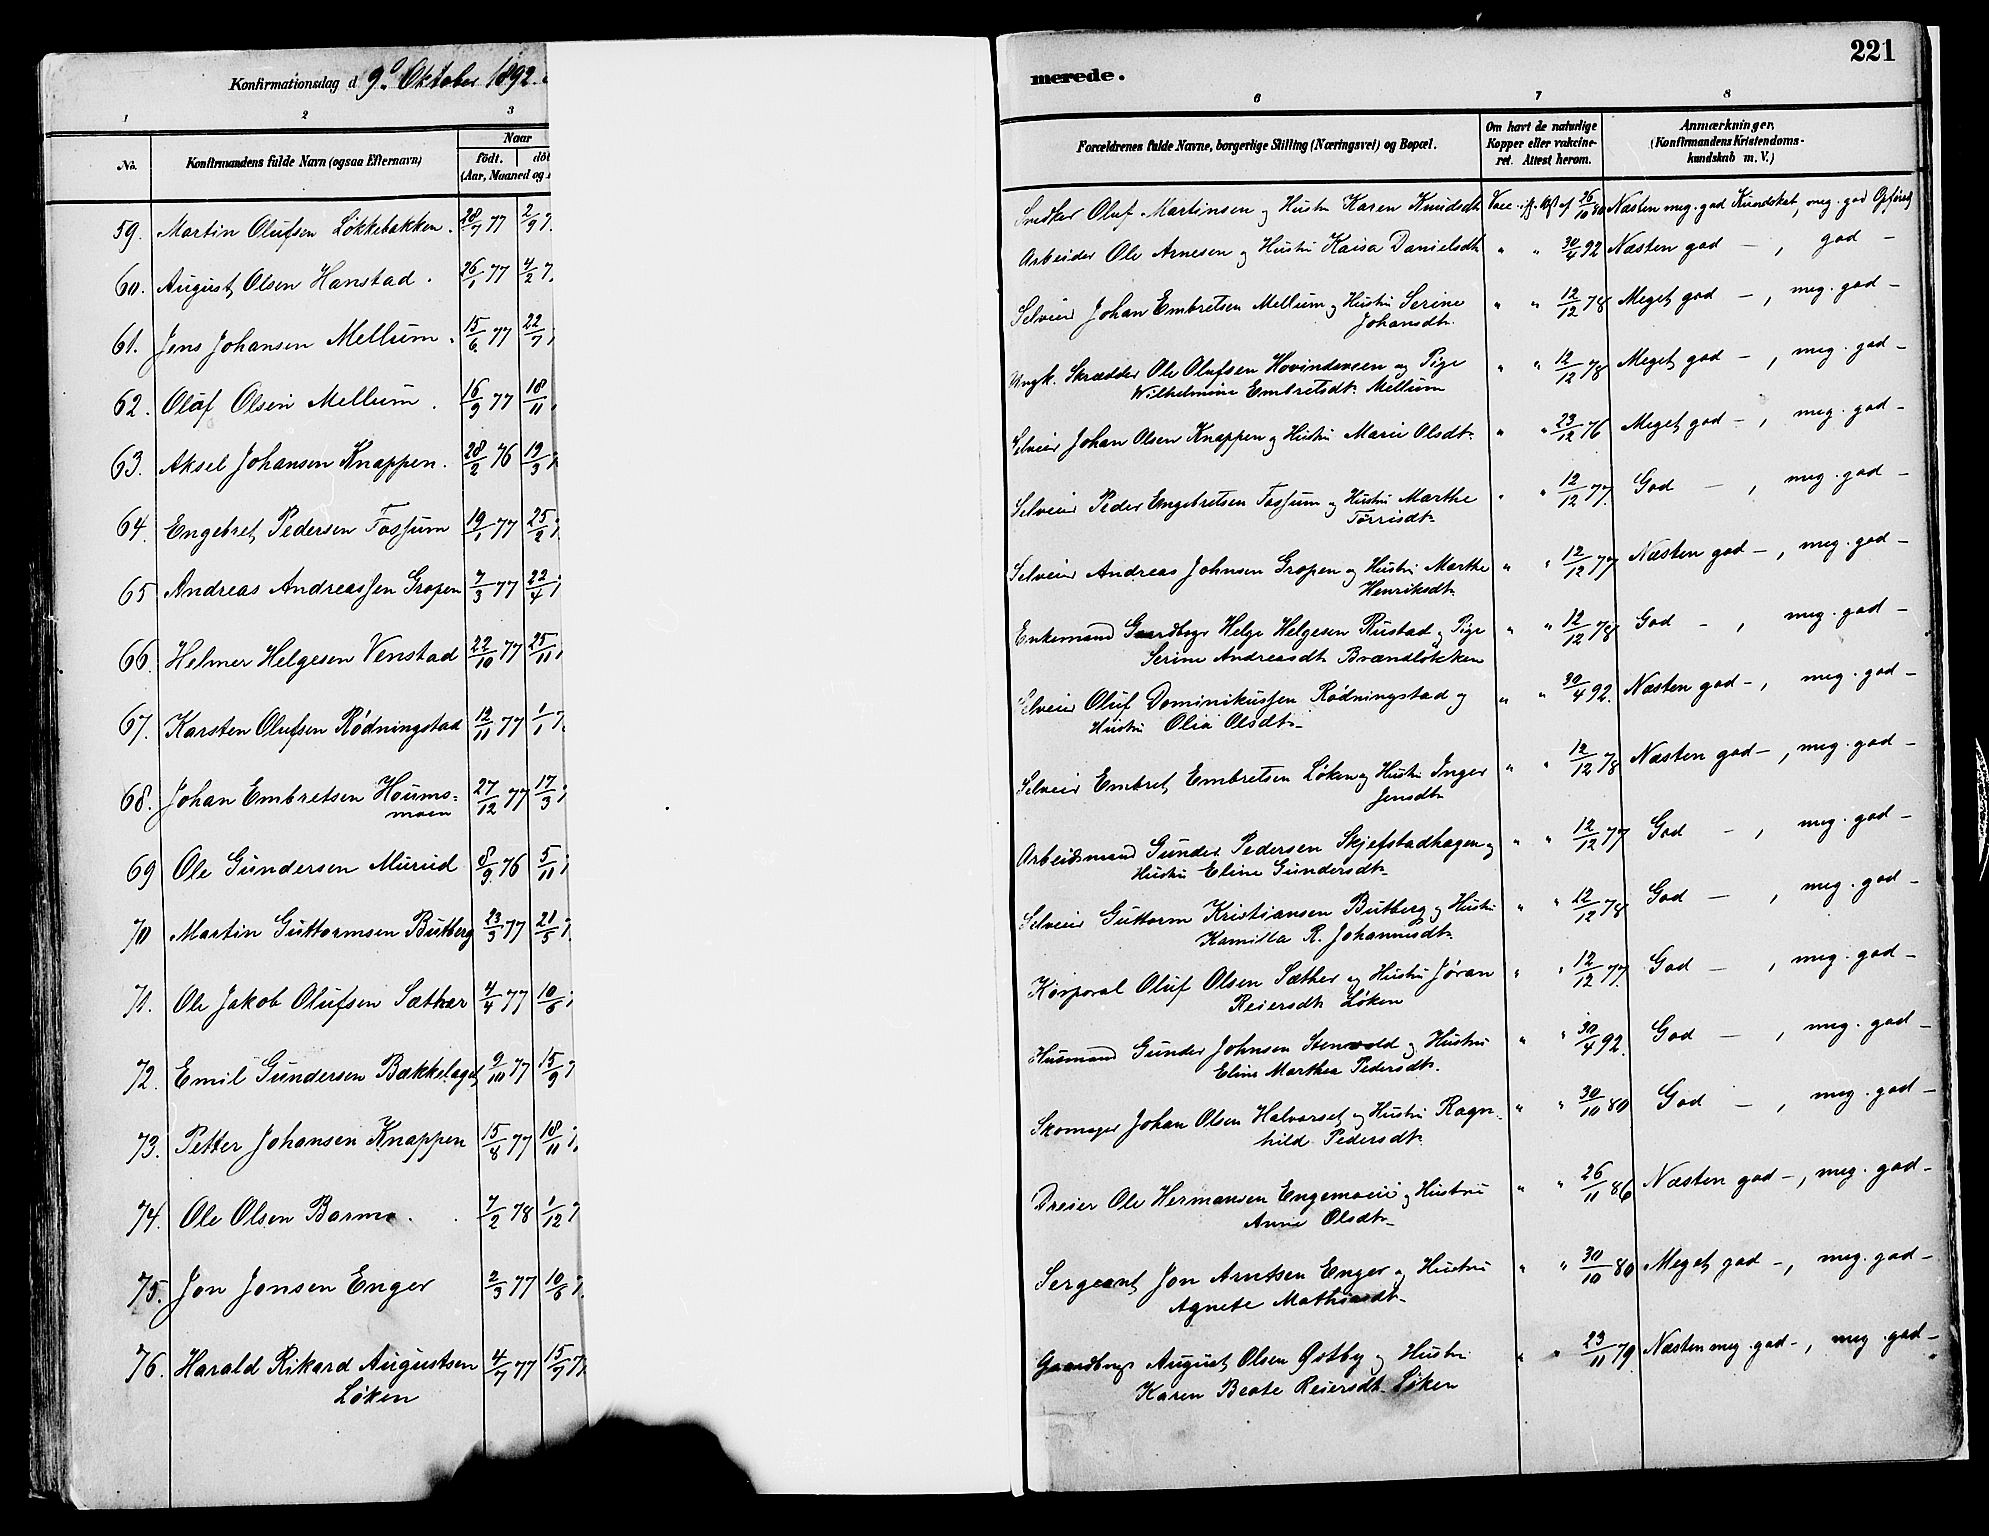 Konfirmationsdag d 9de Oktober 1892.
1 2 3
No. Konfirmandens fulde Navn (ogsaa Efternavn) Naar
födt.
(Aar, Maaned og
59. Martin Olufsen Løkkebakken. 28/7 77 2/9
60. August Olsen Hanstad. 26/1 77 4/2
61. Jens Johansen Mellum. 15/6 77 22/7
62. Olaf Olsen Mellum. 16/9 77 18/11
63. Aksel Johansen Knappen. 28/2 76 19/3
64. Engebret Pedersen Fossum 19/1 77 25/2
65 Andreas Andreassen Gropen 7/3 77 22/4
66. Helmer Helgesen Venstad 22/10 77 25/11
67. Karsten Olufsen Rødningstad 12/11 77 1/1
68. Johan Embretsen Houms=
moen 27/12 77 17/3
69 Ole Gundersen Murud 8/9 76 5/11
70 Martin Guttormsen Butberg 23/3 77 21/5
71. Ole Jakob Olufsen Sæther 4/4 77 10/6
72. Emil Gundersen Bækkelaget 9/10 77 15/9
73. Petter Johansen Knappen 15/8 77 18/11
74. Ole Olsen Barmo. 7/2 78 1/12
75. Jon Jonsen Enger 2/3 77 10/6
76. Harald Rikard Augustsen
Løken 4/7 77 15/7
merede.
221
6 7 8
Forældrenes fulde Navne, borgerlige Stilling (Næringsvei) og Bopæl.
Om havt de naturlige
Kopper eller vakcine-
ret. Attest herom.
Anmærkninger,
(Konfirmandens Kristendoms-
kundskab m. V.)
Snedker Oluf Martinsen og Hustru Karen Knudsdtr Vacc. 26/10 80 Næsten meg. god Kundskab, meg. god Opførsel
Arbeider Ole Arnesen og Hustru Kaisa Danielsdtr " " 30/4 92 Næsten god –, god –
Selveier Johan Embretsen Mellum og Hustru Serine
Johansdtr. " " 12/12 78 Meget god –, meg. god –
Ungk. Skrædder Ole Olufsen Hovindeveen og Pige
Wilhelmine Embretsdtr. Mellum " " 12/12 78 Meget god –, meg. god –
Selveier Johan Olsen Knappen og Hustru Marie Olsdtr. " " 23/12 76 Meget god –, meg. god –
Selveier Peder Engebretsen Fossum og Hustru Marthe
Torrisdtr. " " 12/12 77. God –, meg. god –
Selveier Andreas Johnsen Gropen og Hustru Marthe
Henriksdtr. " " 12/12 77 Næsten god –, meg. god –
Enkemand Gaardbryr Helge Helgesen Rustad og Pige
Serine Andreasdtr. Brændløkken " " 12/12 78 God –, meg. god –
Selveier Oluf Dominikussen Rødningstad og
Hustru Olia Olsdtr. " " 30/4 92. Næsten god –, meg. god –
Selveier Embret Embretsen Løken og Hustru Inger
Jensdtr. " " 12/12 78 Næsten god –, meg. god –
Arbeidsmand Gunder Pedersen Skjefstadhagen og
Hustru Eline Gundersdtr. " " 12/12 77 God –, meg. god –
Selveier Guttorm Kristiansen Butberg og Hustru
Kamilla R. Johannesdtr. " " 12/12 78 God –, meg. god –
Korporal Oluf Olsen Sæther og Hustru Jøran
Reiersdtr. Løken " " 12/12 77. God –, meg. god –
Husmand Gunder Johnsen Stenvold og Hustru
Eline Marthea Pedersdtr. " " 30/4 92. God –, meg. god –
Skomager Johan Olsen Halvorset og Hustru Ragn-
hild Pedersdtr. " " 30/10 80 God –, meg. god –
Dreier Ole Hermansen Engemoen og Hustru
Anne Olsdtr. " " 26/11 86 Næsten god –, meg. god –
Sergeant Jon Arntsen Enger og Hustru
Agnete Mathiasdtr. " " 30/10 80 Meget god –, meg. god –
Gaardbryr August Olsen Østby og Hustru
Karen Beate Reiersdtr. Løken " " 23/11 79 Næsten meg. god –, meg. god –